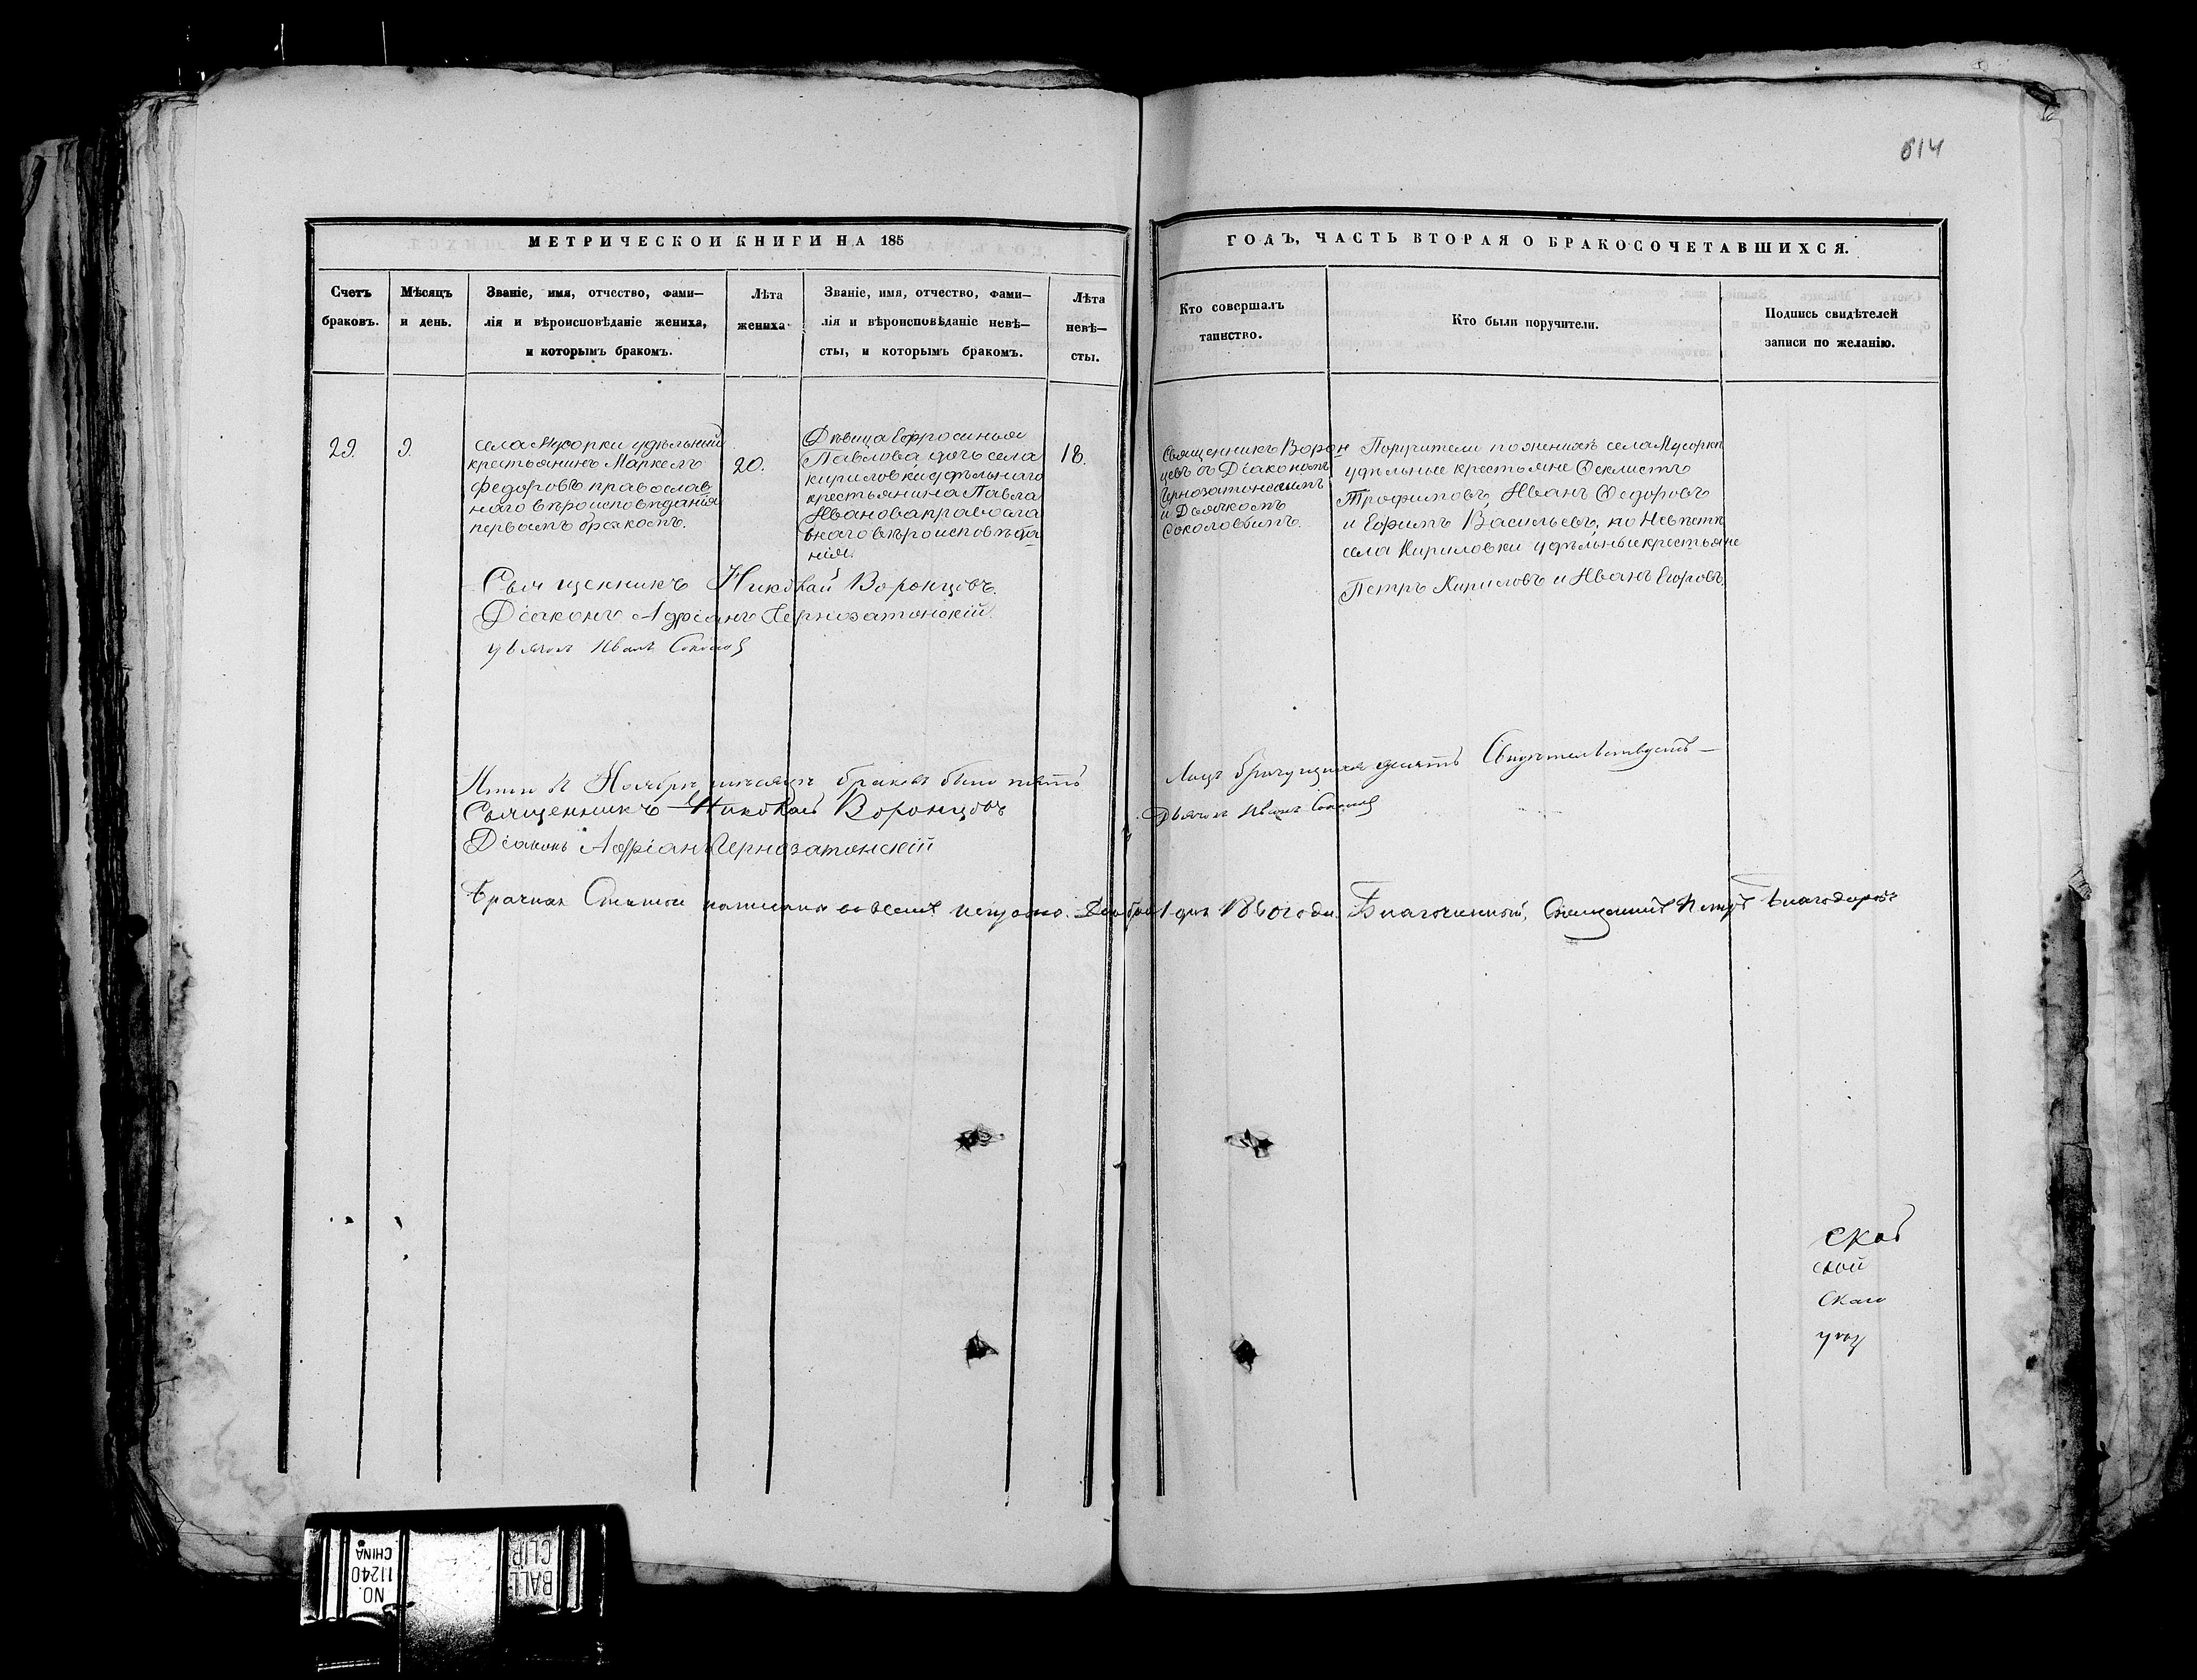 614
МЕТРИЧЕСКОЙ КНИГИ НА 185
ГОДЪ, ЧАСТЬ ВТОРАЯ О БРАКОСОЧЕТАВШИХСЯ.
Счетъ
браковъ.
Мѣсяцъ
и день.
Званіе, имя, отчество, фами–
лія и вѣроисповѣданіе жениха,
и которымъ бракомъ.
Лѣта
жениха
Званіе, имя, отчество, фами–
лія и вѣроисповѣданіе невѣ–
сты, и которымъ бракомъ.
Лѣта
невѣ–
сты.
Кто совершалъ
таинство.
Кто были поручители.
Подпись свидѣтелей
записи по желанію.
29.
9.
села Мусорки удѣльный
крестьянинъ Маркелъ
Федоровъ православ
наго вѣроисповѣданія
первымъ бракомъ.
20.
Дѣвица Ефросинья
Павлова дочь села
Кириловки удѣльнаго
крестьянина Павла
Иванова правосла
внаго вѣроисповѣда
нія.
18.
Священникъ Ворон
цевъ съ Діакономъ
Чернозатонскимъ
и Дьячкомъ
Соколовымъ.
Поручители по женихѣ села Мусорки
удѣльные крестьяне Ѳеклистъ
Трофимовъ, Иванъ Ѳедоровъ
и Ефимъ Васильевъ, по Невѣстѣ
села Кириловки удѣльные крестьяне
Петръ Кириловъ и Иванъ Егоровъ.
Священникъ Николай Воронцовъ.
Діаконъ Адріанъ Чернозатонскій.
Дьячокъ Иванъ Соколов
Итого въ Ноябрѣ мѣсяцѣ браковъ было пять
Лицъ брачущихся десять Свидѣтельствуетъ —
Священникъ Николай Воронцовъ
Дьячокъ Иванъ Соколов
Діаконъ Адріанъ Чернозатонскій
Брачная Статья написана во всемъ исправно. Декабря 1 дня 1860 года. Благочинный, Священникъ Петръ Благодаровъ
ской
ской
Скаго
уѣзд